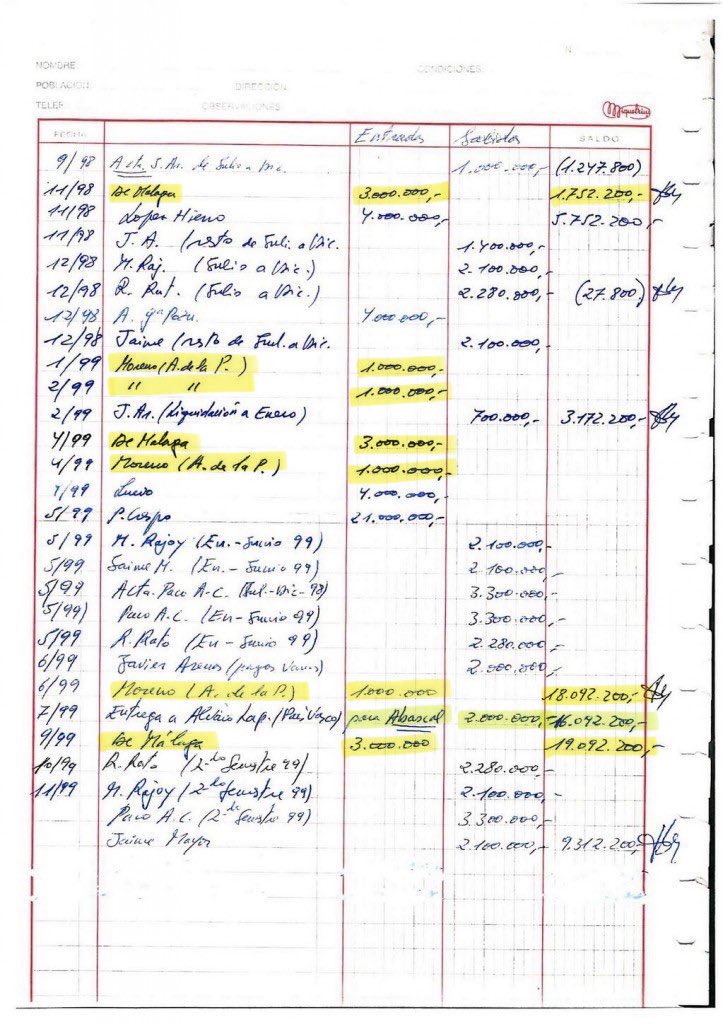 N.
NOMBRE CONDICIONES
POBLACION DIRECCION
TELEF. OBSERVACIONES Miquelrius
FECHA Entradas Salidas SALDO
9/98 A cta. S. Ar. de Julio a Dic. 1.000.000,- (1.247.800)
11/98 De Malaga 3.000.000,- 1.752.200,-
11/98 Lopez Hieno 4.000.000,- 5.752.200,
11/98 J. A. (resto de Juli. a Dic. 1.400.000,-
12/98 M. Raj. (Julio a Dic.) 2.100.000,-
12/98 R. Rat. (Julio a Dic.) 2.280.000,- (27.800)
12/98 A. gª Pozu. 4.000.000,-
12/98 Jaime (resto de Jul. a Dic. 2.100.000,-
1/99 Moreno (A. de la P.) 1.000.000,-
2/99 " " 1.000.000,-
2/99 J. Ar. (Liquidación a Enero) 700.000,- 3.172.200,-
4/99 De Malaga 3.000.000,-
4/99 Moreno (A. de la P.) 1.000.000,-
4/99 4.000.000,-
5/99 P. Crespo 21.000.000,-
5/99 M. Rajoy (En.- Junio 99) 2.100.000,-
5/99 Jaime M. (En - Junio 99) 2.100.000,-
5/99 Acta. Paco A.C. (Jul.-Dic-98) 3.300.000,-
5/99) Paco A.C. (En - Junio 99) 3.300.000,-
5/99 R. Rato (En - Junio 99) 2.280.000,-
6/99 Javier Arenas (pagos varios) 2.000.000,-
6/99 Moreno (A. de la P.) 1.000.000 18.092.200,-
7/99 Entrega a Alvaro Lap. (País Vasco) para Abascal 2.000.000,- 16.092.200,-
9/99 De Málaga 3.000.000 19.092.200,-
10/99 R. Rato (2º Semestre 99) 2.280.000,-
11/99 M. Rajoy (2º Semestre 99) 2.100.000,-
Paco A.C. (2º Semestre 99) 3.300.000,-
Jaime Mayor 2.100.000,- 9.312.200,-